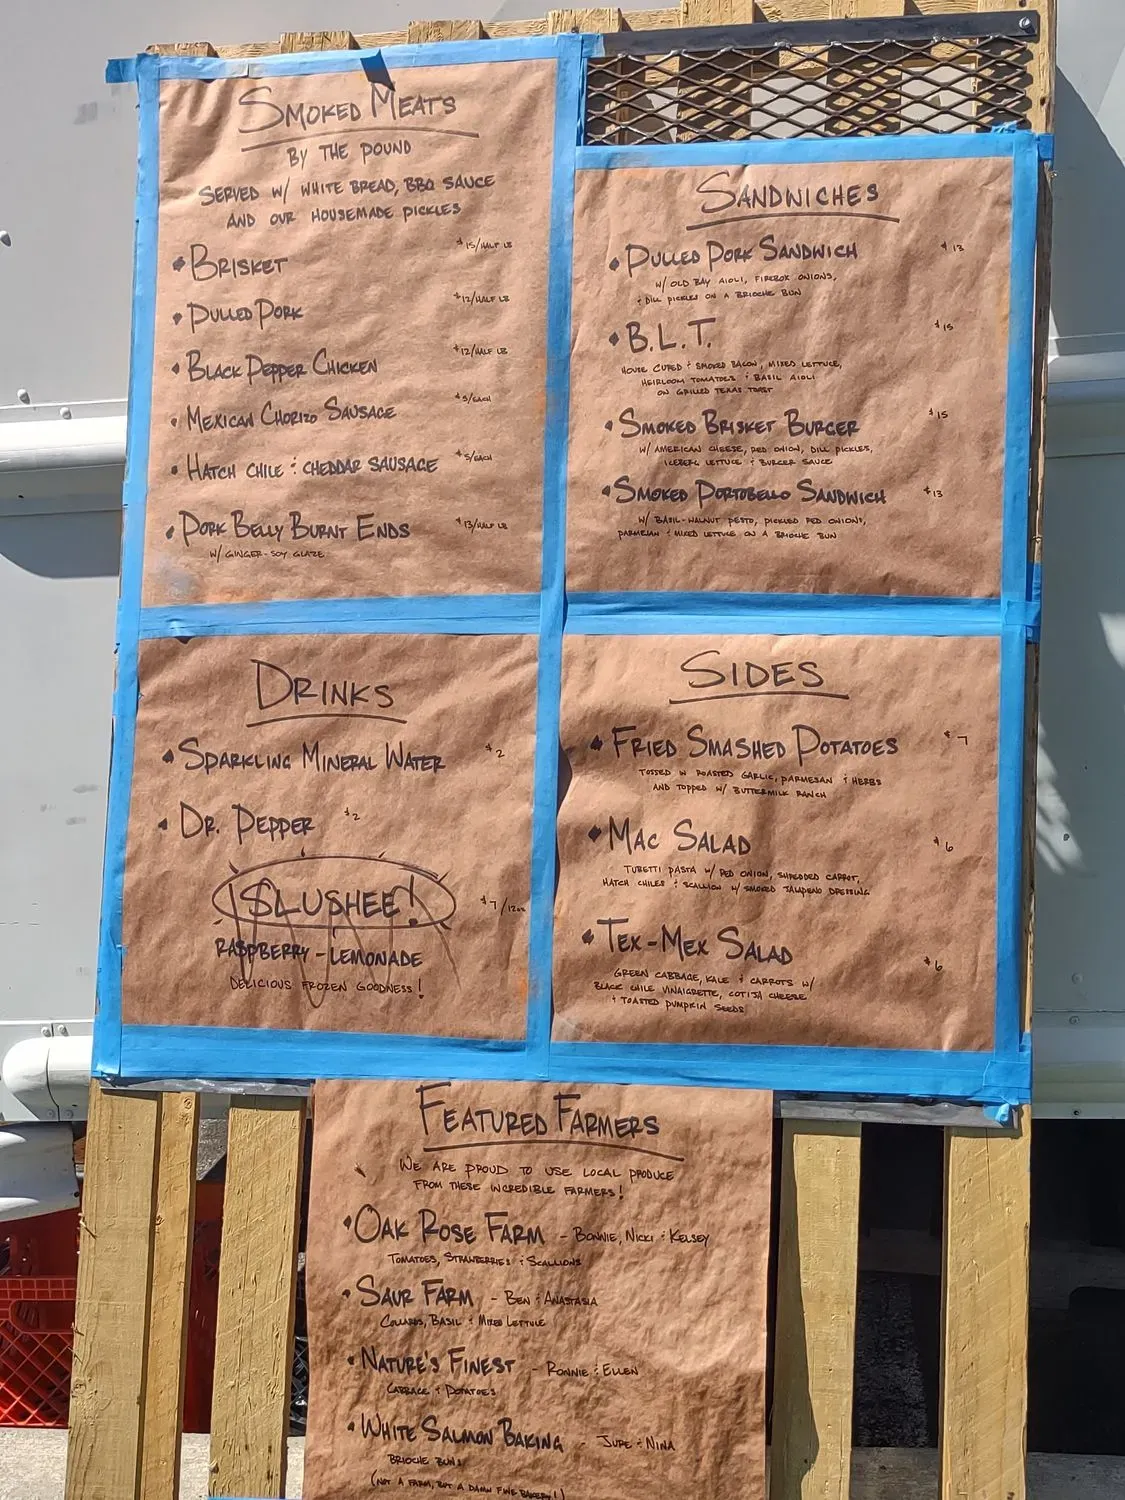 SMOKED MEATS
BY THE POUND
SERVED W/ WHITE BREAD, BBQ SAUCE
AND OUR HOUSEMADE PICKLES
• BRISKET $15/HALF LB
• PULLED PORK $12/HALF LB
• BLACK PEPPER CHICKEN $12/HALF LB
• MEXICAN CHORIZO SAUSAGE $5/EACH
• HATCH CHILE + CHEDDAR SAUSAGE $5/EACH
• PORK BELLY BURNT ENDS $13/HALF LB
W/ GINGER-SOY GLAZE
SANDWICHES
• PULLED PORK SANDWICH $13
W/ OLD BAY AIOLI, FIREBOX ONIONS,
+ DILL PICKLES ON A BRIOCHE BUN
• B.L.T. $15
HOUSE CURED + SMOKED BACON, MIXED LETTUCE,
HEIRLOOM TOMATOES + BASIL AIOLI
ON GRILLED TEXAS TOAST
• SMOKED BRISKET BURGER $15
W/ AMERICAN CHEESE, RED ONION, DILL PICKLES,
ICEBERG LETTUCE + BURGER SAUCE
• SMOKED PORTOBELLO SANDWICH $13
W/ BASIL-WALNUT PESTO, PICKLED RED ONIONS,
PARMESAN + MIXED LETTUCE ON A BRIOCHE BUN
DRINKS
• SPARKLING MINERAL WATER $2
• DR. PEPPER $2
¡SLUSHEE! $7/12oz
RASPBERRY-LEMONADE
DELICIOUS FROZEN GOODNESS!
SIDES
• FRIED SMASHED POTATOES $7
TOSSED IN ROASTED GARLIC, PARMESAN + HERBS
AND TOPPED W/ BUTTERMILK RANCH
• MAC SALAD $6
TUBETTI PASTA W/ RED ONION, SHREDDED CARROT,
HATCH CHILES + SCALLION W/ SMOKED JALAPENO DRESSING
• TEX-MEX SALAD $6
GREEN CABBAGE, KALE + CARROTS W/
BLACK CHILE VINAIGRETTE, COTIJA CHEESE
+ TOASTED PUMPKIN SEEDS
FEATURED FARMERS
WE ARE PROUD TO USE LOCAL PRODUCE
FROM THESE INCREDIBLE FARMERS!
• OAK ROSE FARM - BONNIE, NICKI + KELSEY
TOMATOES, STRAWBERRIES + SCALLIONS
• SAUR FARM - BEN + ANASTASIA
COLLARDS, BASIL + MIXED LETTUCE
• NATURE'S FINEST - RONNIE + ELLEN
CABBAGE + POTATOES
• WHITE SALMON BAKING - JURE + NINA
BRIOCHE BUNS
(NOT A FARM, BUT A DAMN FINE BAKERY!)